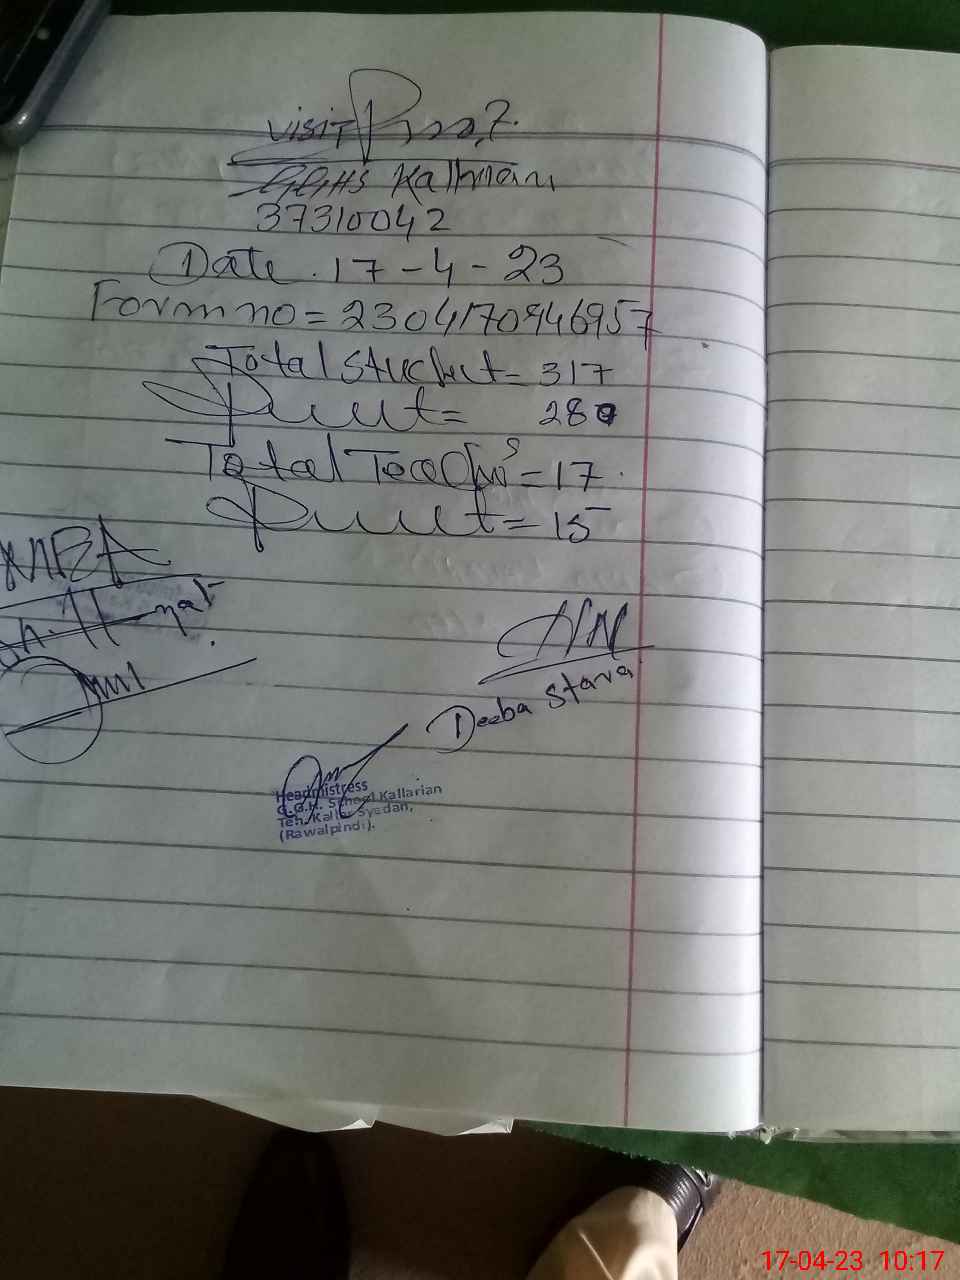 Visit Proof.
GGHS Kallrian
37310042
Date. 17-4-23
Form no = 2304170946957
Total Student = 317
Present = 280
Total Teachers = 17.
Present = 15
MEA
Deeba Stara
Headmistress
G.G.H. School Kallarian
Teh. Kallar Syedan,
(Rawalpindi).
17-04-23 10:17